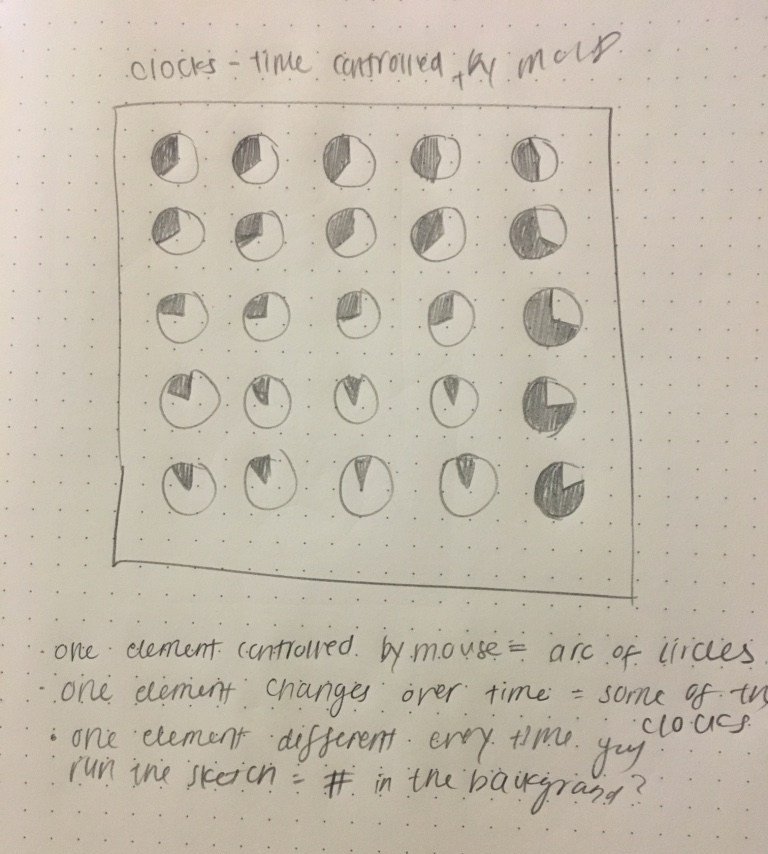 clocks - time controlled by mouse
• one element controlled by mouse = arc of circles
- one element changes over time = some of th
clocks
• one element different every time you
run the sketch = # in the background?